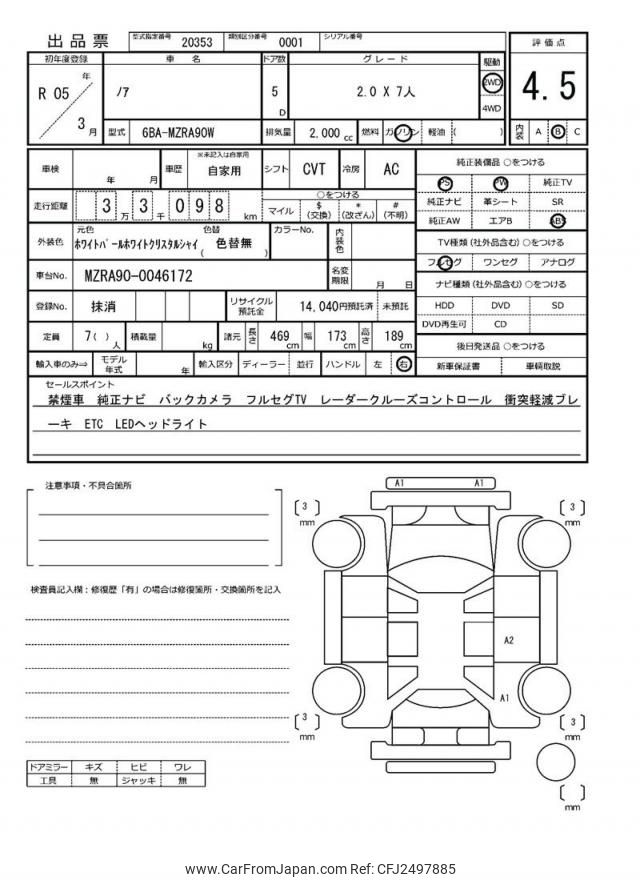 出品票 型式指定番号 20353 類別区分番号 0001 シリアル番号
初年度登録 車 名 ドア数 グレード 駆動 評価点
R 05 年 3 月 ノア 5 D 2.0 X 7人 2WD 4WD 4.5
型式 6BA-MZRA90W 排気量 2,000 cc 燃料 ガソリン 軽油 ( ) 内装 A B C
車検 年 月 車歴 ※未記入は自家用 自家用 シフト CVT 冷房 AC 純正装備品 ○をつける
PS PW 純正TV
走行距離 3 万 3 千 0 9 8 km ○をつける 純正ナビ 革シート SR
マイル $ (交換) * (改ざん) # (不明) 純正AW エアB ABS
外装色 元色 色替 カラーNo. 内装色 TV種類 (社外品含む) ○をつける
ホワイトパールホワイトクリスタルシャイ ( 色替無 ) フルセグ ワンセグ アナログ
車台No. MZRA90-0046172 名変期限 月 日 ナビ種類 (社外品含む) ○をつける
登録No. 抹消 リサイクル預託金 14,040円預託済 未預託 HDD DVD SD
DVD再生可 CD
定員 7( ) 人 積載量 kg 諸元 長さ 469 cm 幅 173 cm 高さ 189 cm 後日発送品 ○をつける
輸入車のみ⇒ モデル年式 年 輸入区分 ディーラー 並行 ハンドル 左 右 新車保証書 車輌取説
セールスポイント
禁煙車 純正ナビ バックカメラ フルセグTV レーダークルーズコントロール 衝突軽減ブレ
ーキ ETC LEDヘッドライト
注意事項・不具合箇所
A1 A1
〔 3 〕 mm 〔 3 〕 mm
検査員記入欄：修復歴「有」の場合は修復箇所・交換箇所を記入
A2
A1
〔 3 〕 mm 〔 3 〕 mm
ドアミラー キズ ヒビ ワレ
工具 無 ジャッキ 無
〔 〕 mm
www.CarFromJapan.com Ref: CFJ2497885